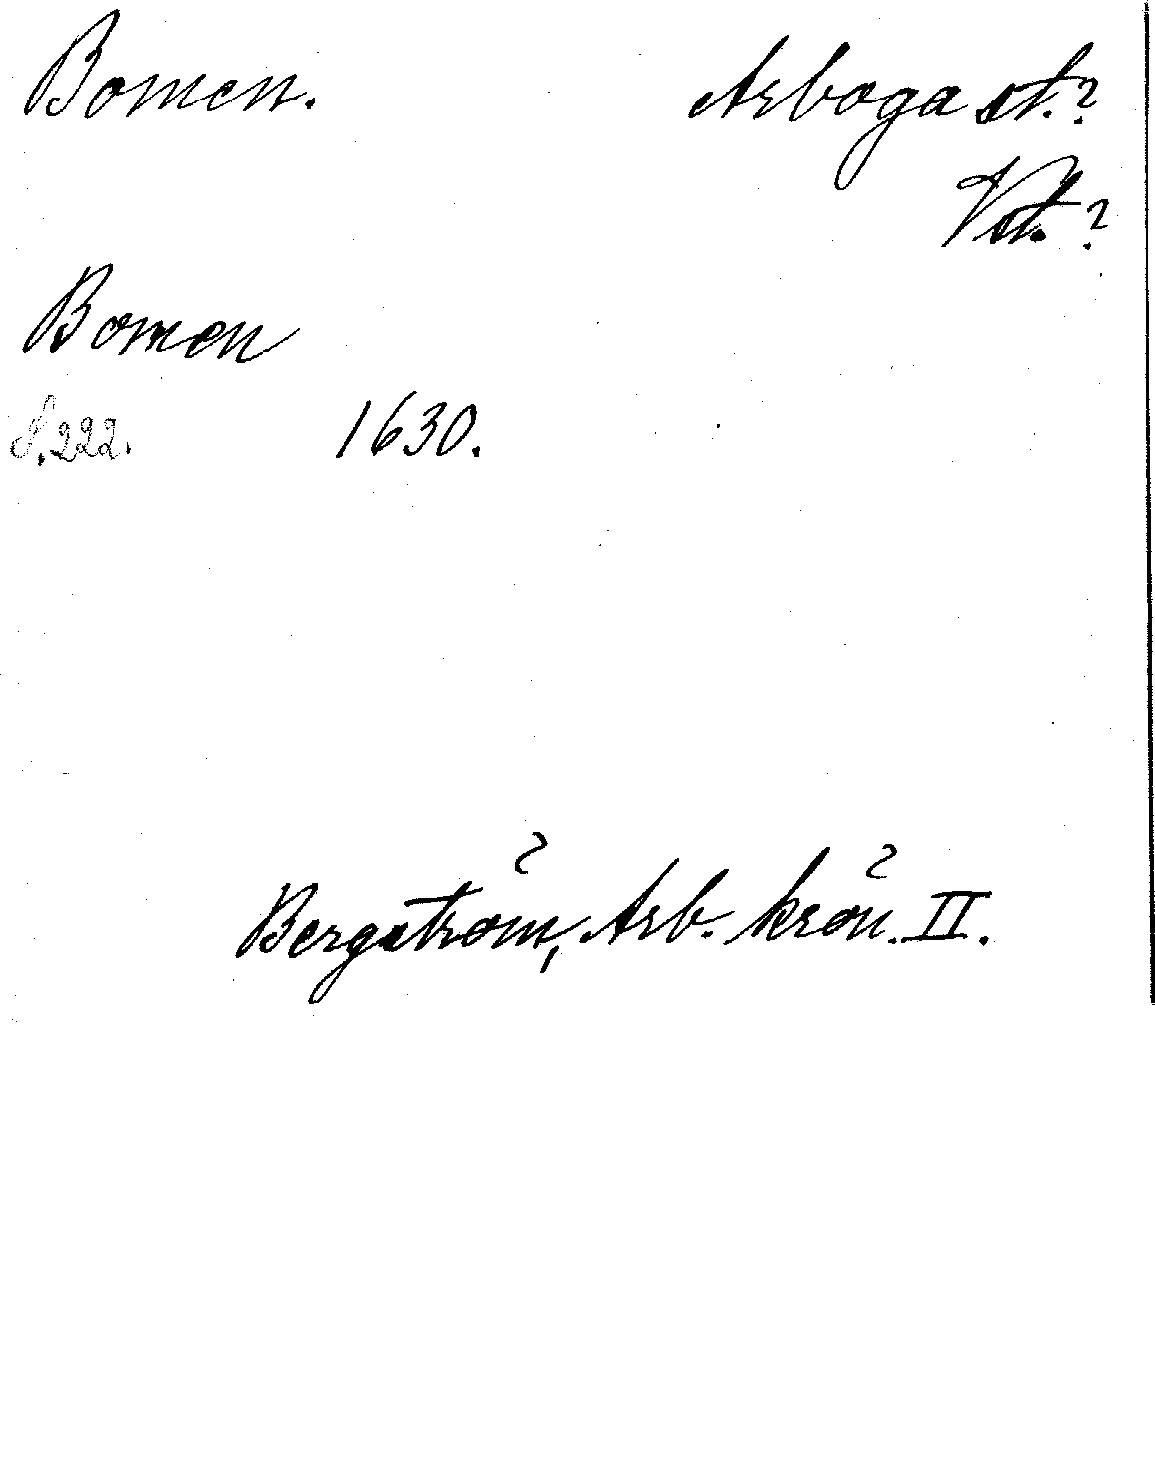 Bomen. Arboga st.?
Vstl. ?
Bomen
S. 222. 1630.
Bergström, Arb. krön. II.